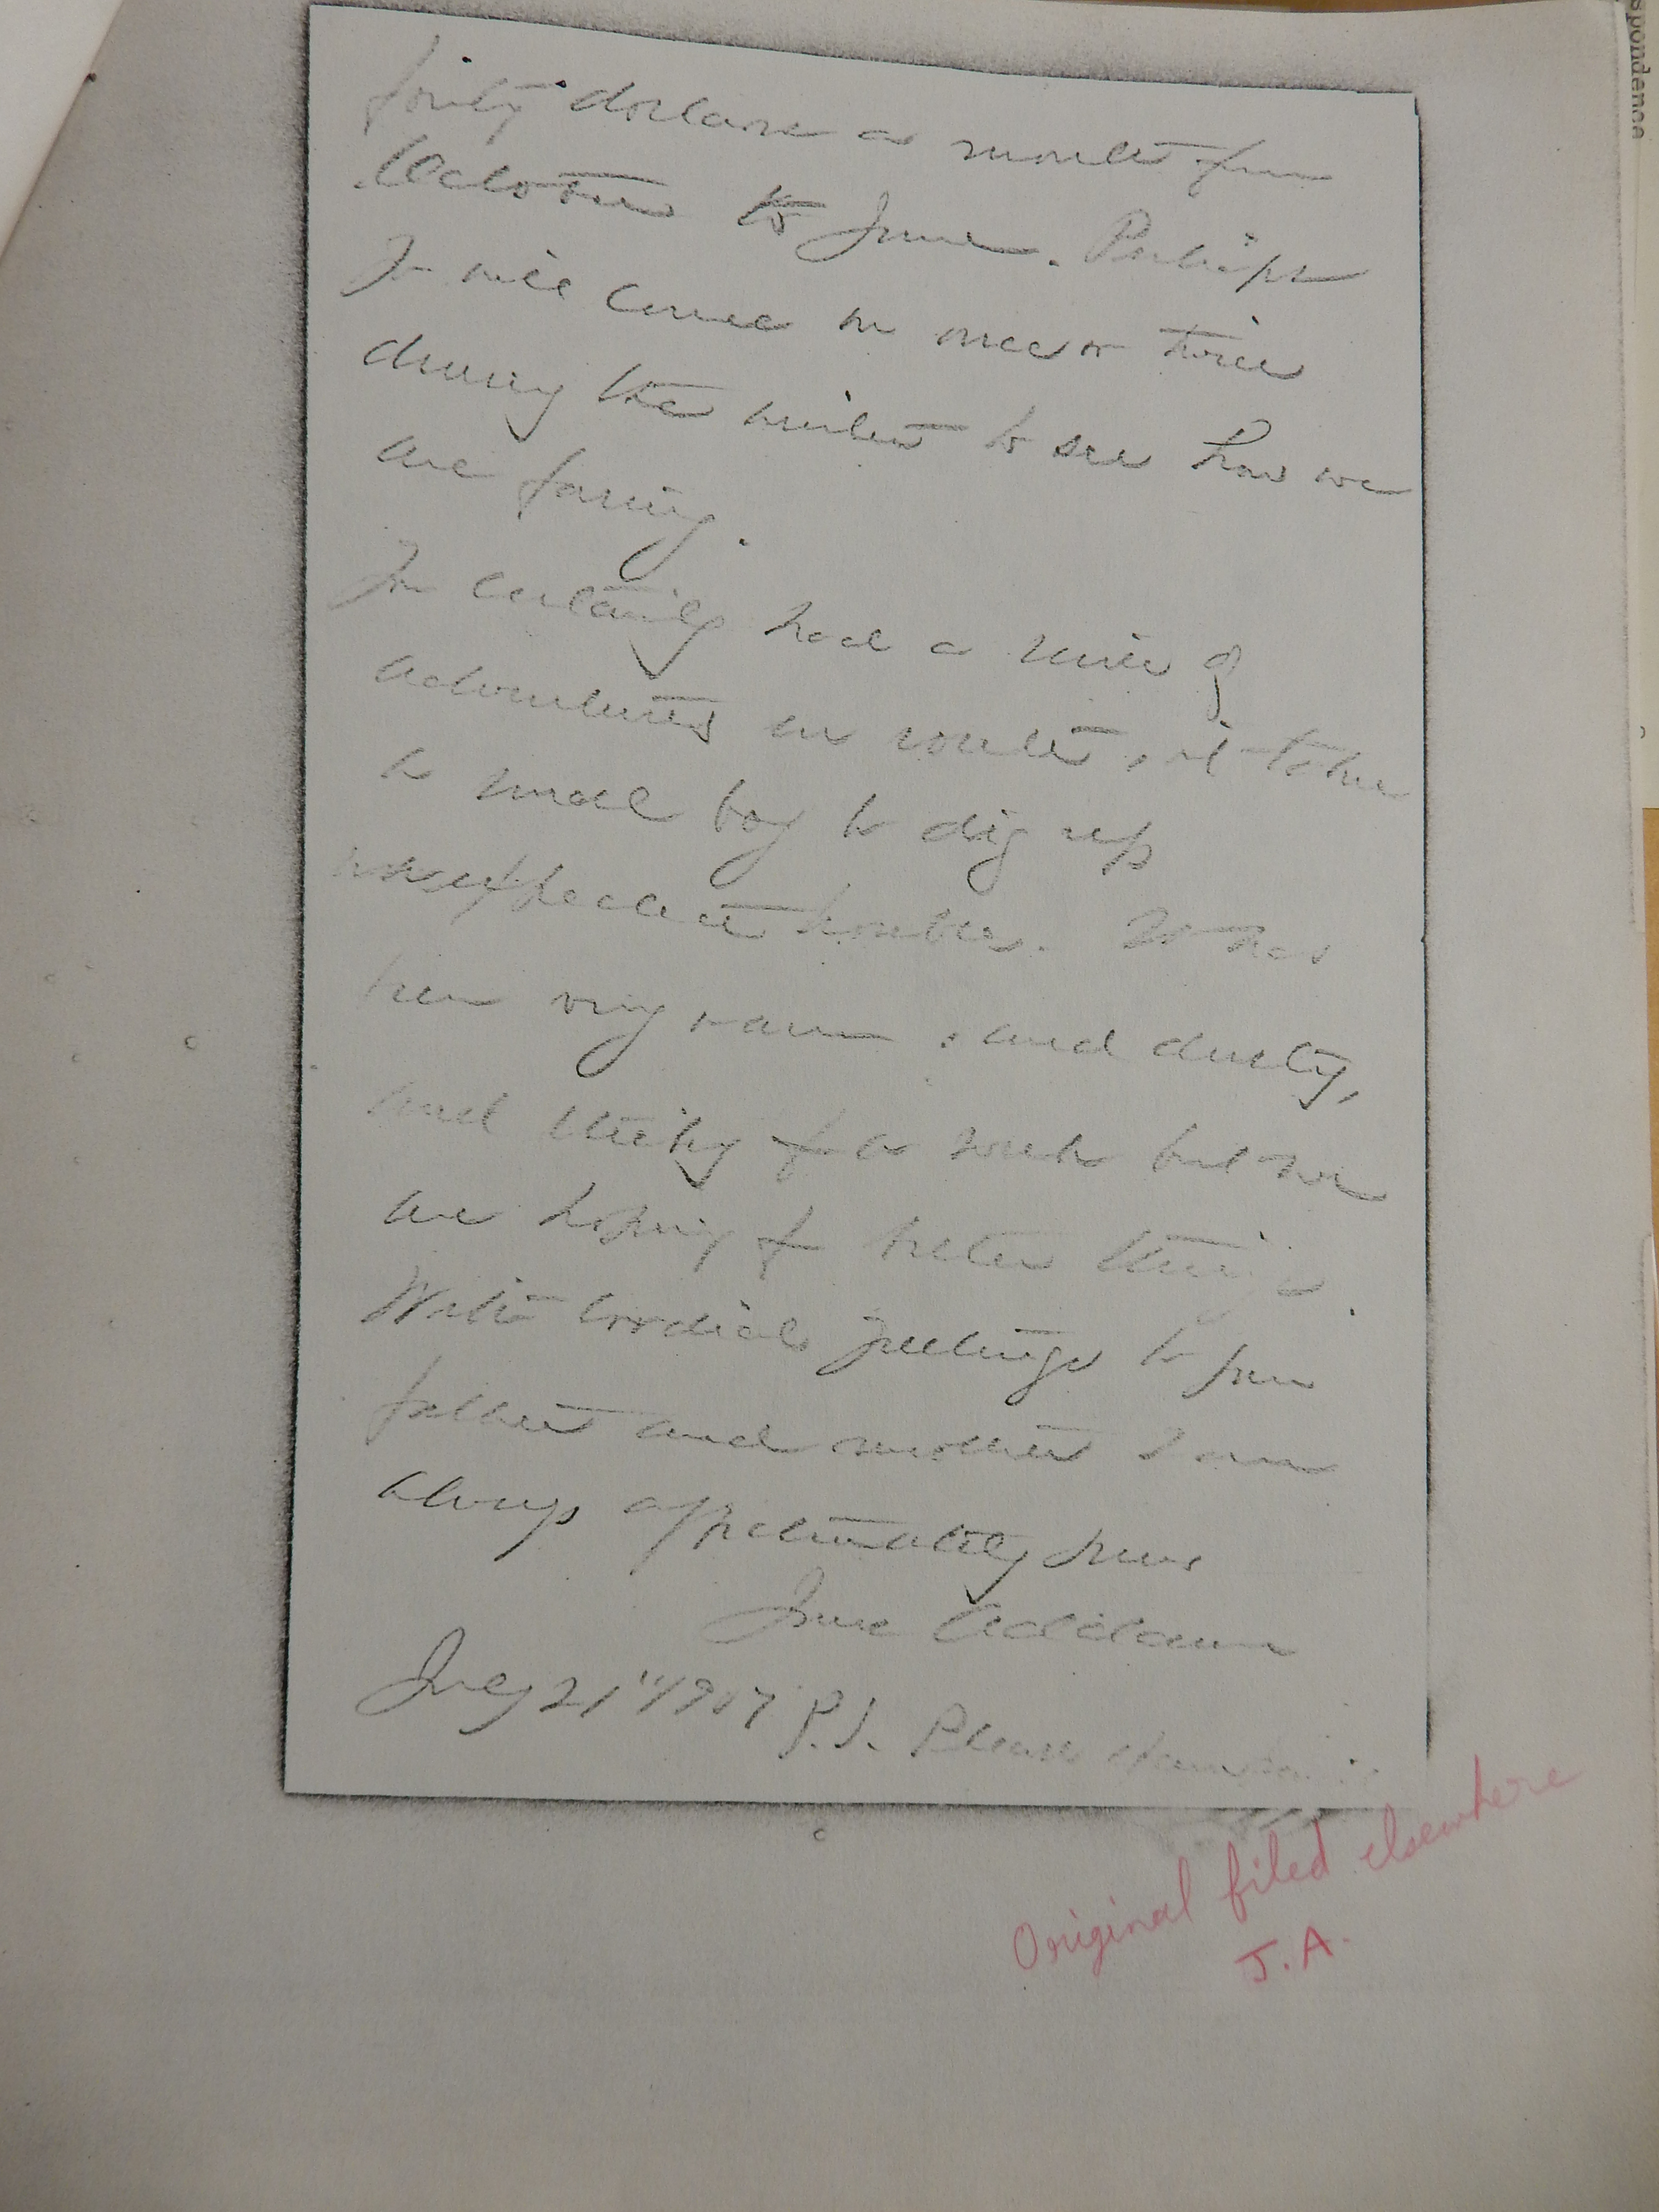 forty dollars a month from
October to June. Perhaps
you will come in once or twice
during the winter to see how we
are faring.
You certainly had a series of
adventures en route, it takes
a small boy to dig up
unexpected troubles. It has
been very warm, and dusty,
and sticky for a week but we
are hoping for better things.
With cordial greetings to your
father and mother I am
always affectionately yours
Jane Addams
July 21" 1907 P.S. Please
Original filed elsewhere
J.A.
spondence